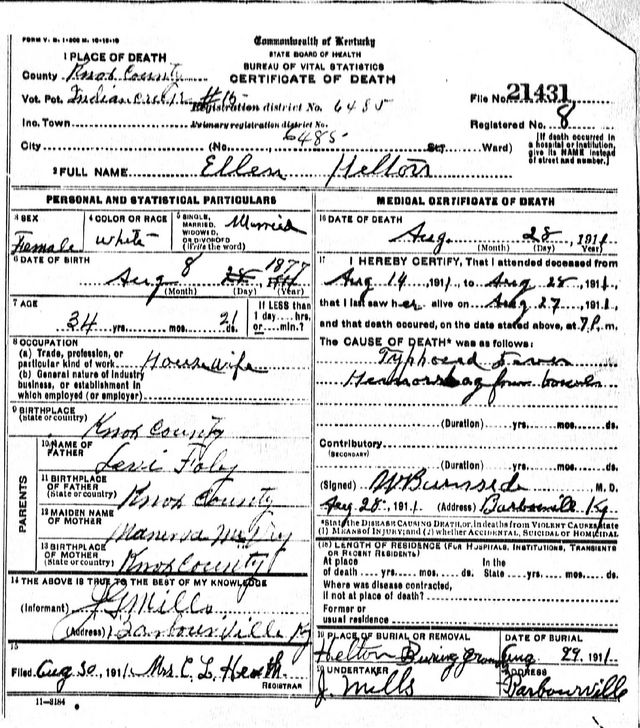 FORM V. S. 1-200 M. 10-15-10
Commonwealth of Kentucky
STATE BOARD OF HEALTH
BUREAU OF VITAL STATISTICS
CERTIFICATE OF DEATH
1 PLACE OF DEATH
County Knox County
Vot. Pct. Indian creek #15 Registration district No. 6485 File No. 21431
Inc. Town Primary registration district No. 6485 Registered No. 8
City (No. St. Ward)
[If death occurred in a hospital or institution, give its NAME instead of street and number.]
2 FULL NAME Ellen Helton
PERSONAL AND STATISTICAL PARTICULARS
3 SEX Female
4 COLOR OR RACE White
5 SINGLE, MARRIED, WIDOWED, OR DIVORCED (Write the word) Married
6 DATE OF BIRTH
Aug 8 28 1877
(Month) (Day) (Year)
7 AGE
34 yrs. mos. 21 ds.
If LESS than 1 day hrs. or min.?
8 OCCUPATION
(a) Trade, profession, or particular kind of work House wife
(b) General nature of industry business, or establishment in which employed (or employer)
9 BIRTHPLACE
(State or country) Knox County
10 NAME OF FATHER Levi Foley
PARENTS
11 BIRTHPLACE OF FATHER (State or country) Knox County
12 MAIDEN NAME OF MOTHER
13 BIRTHPLACE OF MOTHER (State or country) Knox County
14 THE ABOVE IS TRUE TO THE BEST OF MY KNOWLEDGE
(Informant) J G Mills
(Address) Barbourville Ky
15
Filed Aug 30, 1911 Mrs. C. L. Heath
REGISTRAR
11-3184
MEDICAL CERTIFICATE OF DEATH
16 DATE OF DEATH
Aug. 28, 1911
(Month) (Day) (Year)
17 I HEREBY CERTIFY, That I attended deceased from
Aug 14, 1911, to Aug 28, 1911,
that I last saw her alive on Aug 27, 1911,
and that death occured, on the date stated above, at 7 P. m.
The CAUSE OF DEATH* was as follows:
Typhoid Fever
from bowels
(Duration) yrs. mos. ds.
Contributory
(SECONDARY)
(Duration) yrs. mos. ds.
(Signed) W Burnside M. D.
Aug 28, 1911 (Address) Barbourville Ky.
*State the DISEASE CAUSING DEATH, or, in deaths from VIOLENT CAUSES, state
(1) MEANS OF INJURY; and (2) whether ACCIDENTAL, SUICIDAL or HOMICIDAL
(18) LENGTH OF RESIDENCE (FOR HOSPITALS, INSTITUTIONS, TRANSIENTS OR RECENT RESIDENTS)
At place of death yrs. mos. ds. In the State yrs. mos. ds.
Where was disease contracted, if not at place of death?
Former or usual residence
19 PLACE OF BURIAL OR REMOVAL
Helton Buring ground
DATE OF BURIAL
Aug 29, 1911
20 UNDERTAKER
J. Mills
Barbourville